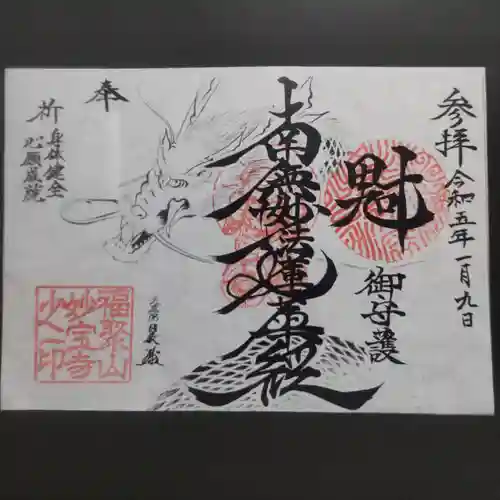 参拝 令和五年一月九日
魁
御守護
南無妙法蓮華経
奉
祈 身体健全
心願成就
福聚山
妙宝寺
之印